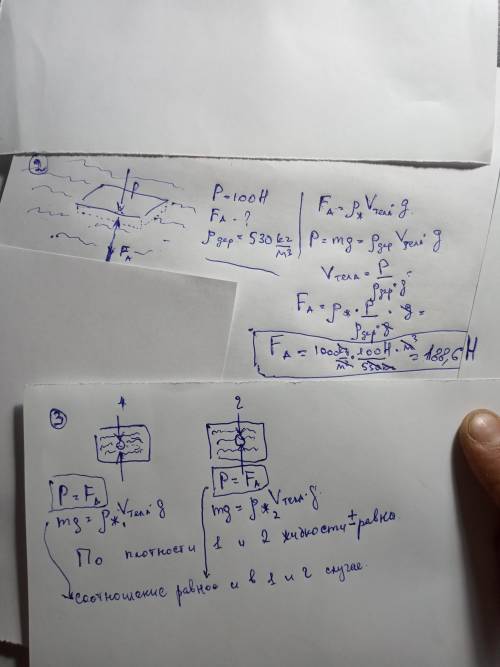 2
P
F_A
P = 100 Н
F_A - ?
ρ_дер = 530 кг/м³
F_A = ρ_ж V_тела · g.
P = mg = ρ_дер V_тела · g
V_тела = P / ρ_дер · g
F_A = ρ_ж · P / ρ_дер · g · g =
F_A = 1000 кг/м³ · 100 Н / 530 кг · м³ = 188,6 Н
3
1
2
P = F_A
P = F_A
mg = ρ_ж₁ V_тела · g
mg = ρ_ж₂ V_тела · g
По плотности 1 и 2 жидкости ± равны.
соотношение равное и в 1 и 2 случае.